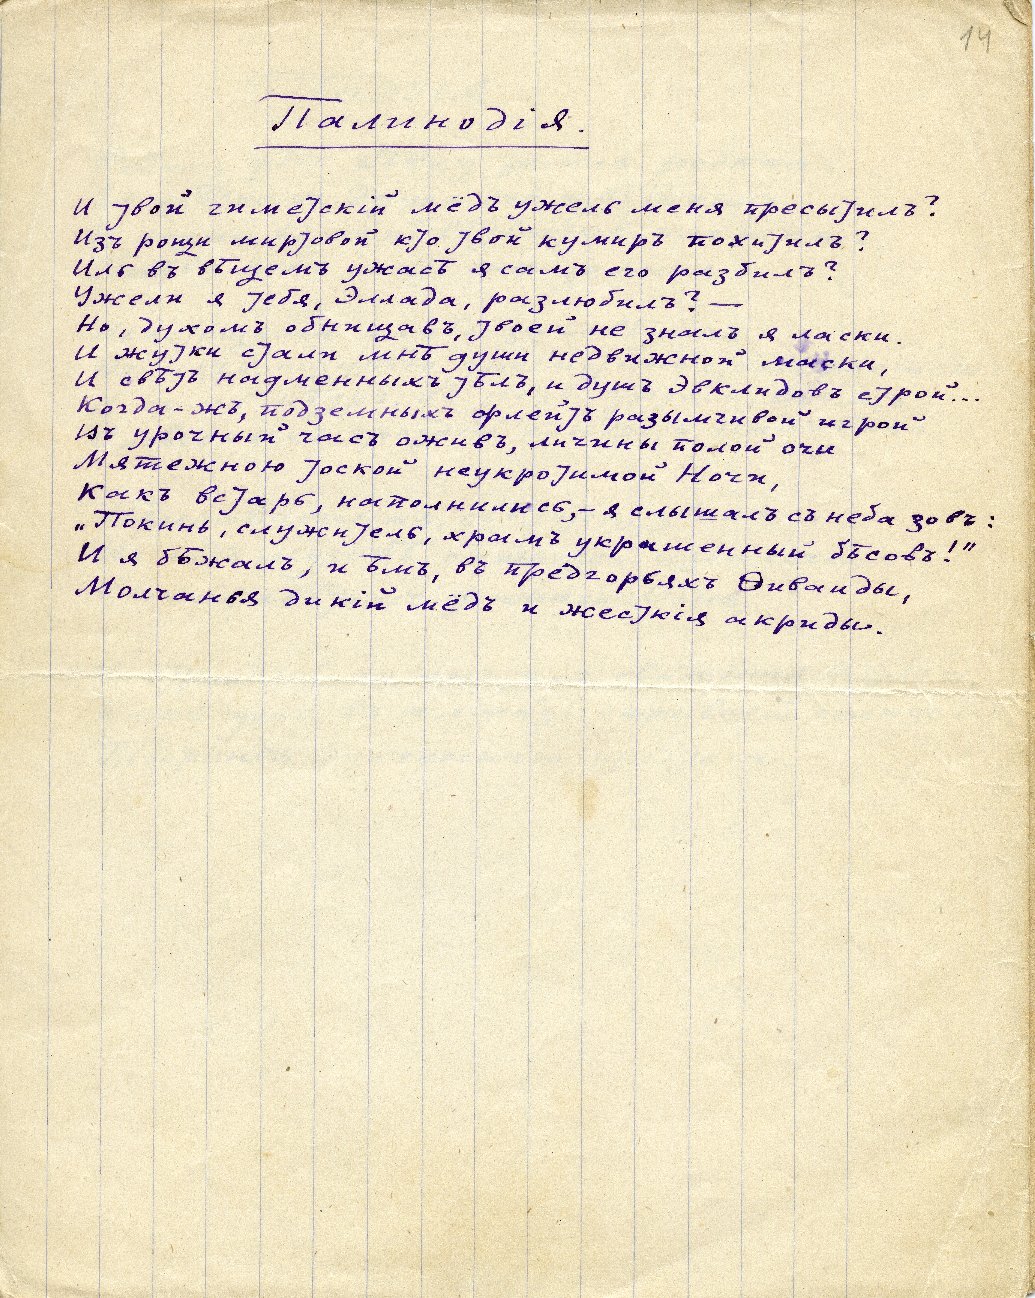 14
Палинодія.
И твой гиметскій мёдъ ужель меня пресытилъ?
Изъ рощи миртовой кто твой кумиръ похитилъ?
Иль въ вѣщемъ ужасѣ я самъ его разбилъ?
Ужели я тебя, Эллада, разлюбилъ? —
Но, духомъ обнищавъ, твоей не зналъ я ласки.
И жутки стали мнѣ души недвижной маски,
И свѣтъ надменныхъ тѣлъ, и душъ Эвклидовъ строй...
Когда-жъ, подземныхъ флейтъ разымчивой игрой
Въ урочный часъ оживъ, личины полой очи
Мятежною тоской неукротимой Ночи,
Какъ встарь, наполнились,– я слышалъ съ неба зовъ:
„Покинь, служитель, храмъ украшенный бѣсовъ!"
И я бѣжалъ, и ѣмъ, въ предгорьяхъ Ѳиваиды,
Молчанья дикій мёдъ и жесткія акриды.